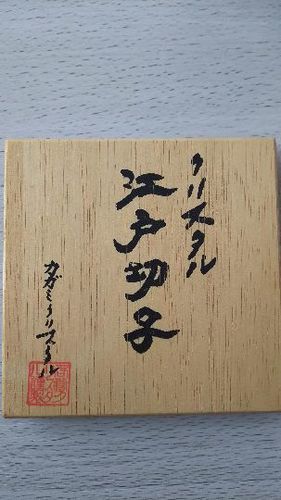 クリスタル
江戸切子
カガミクリスタル